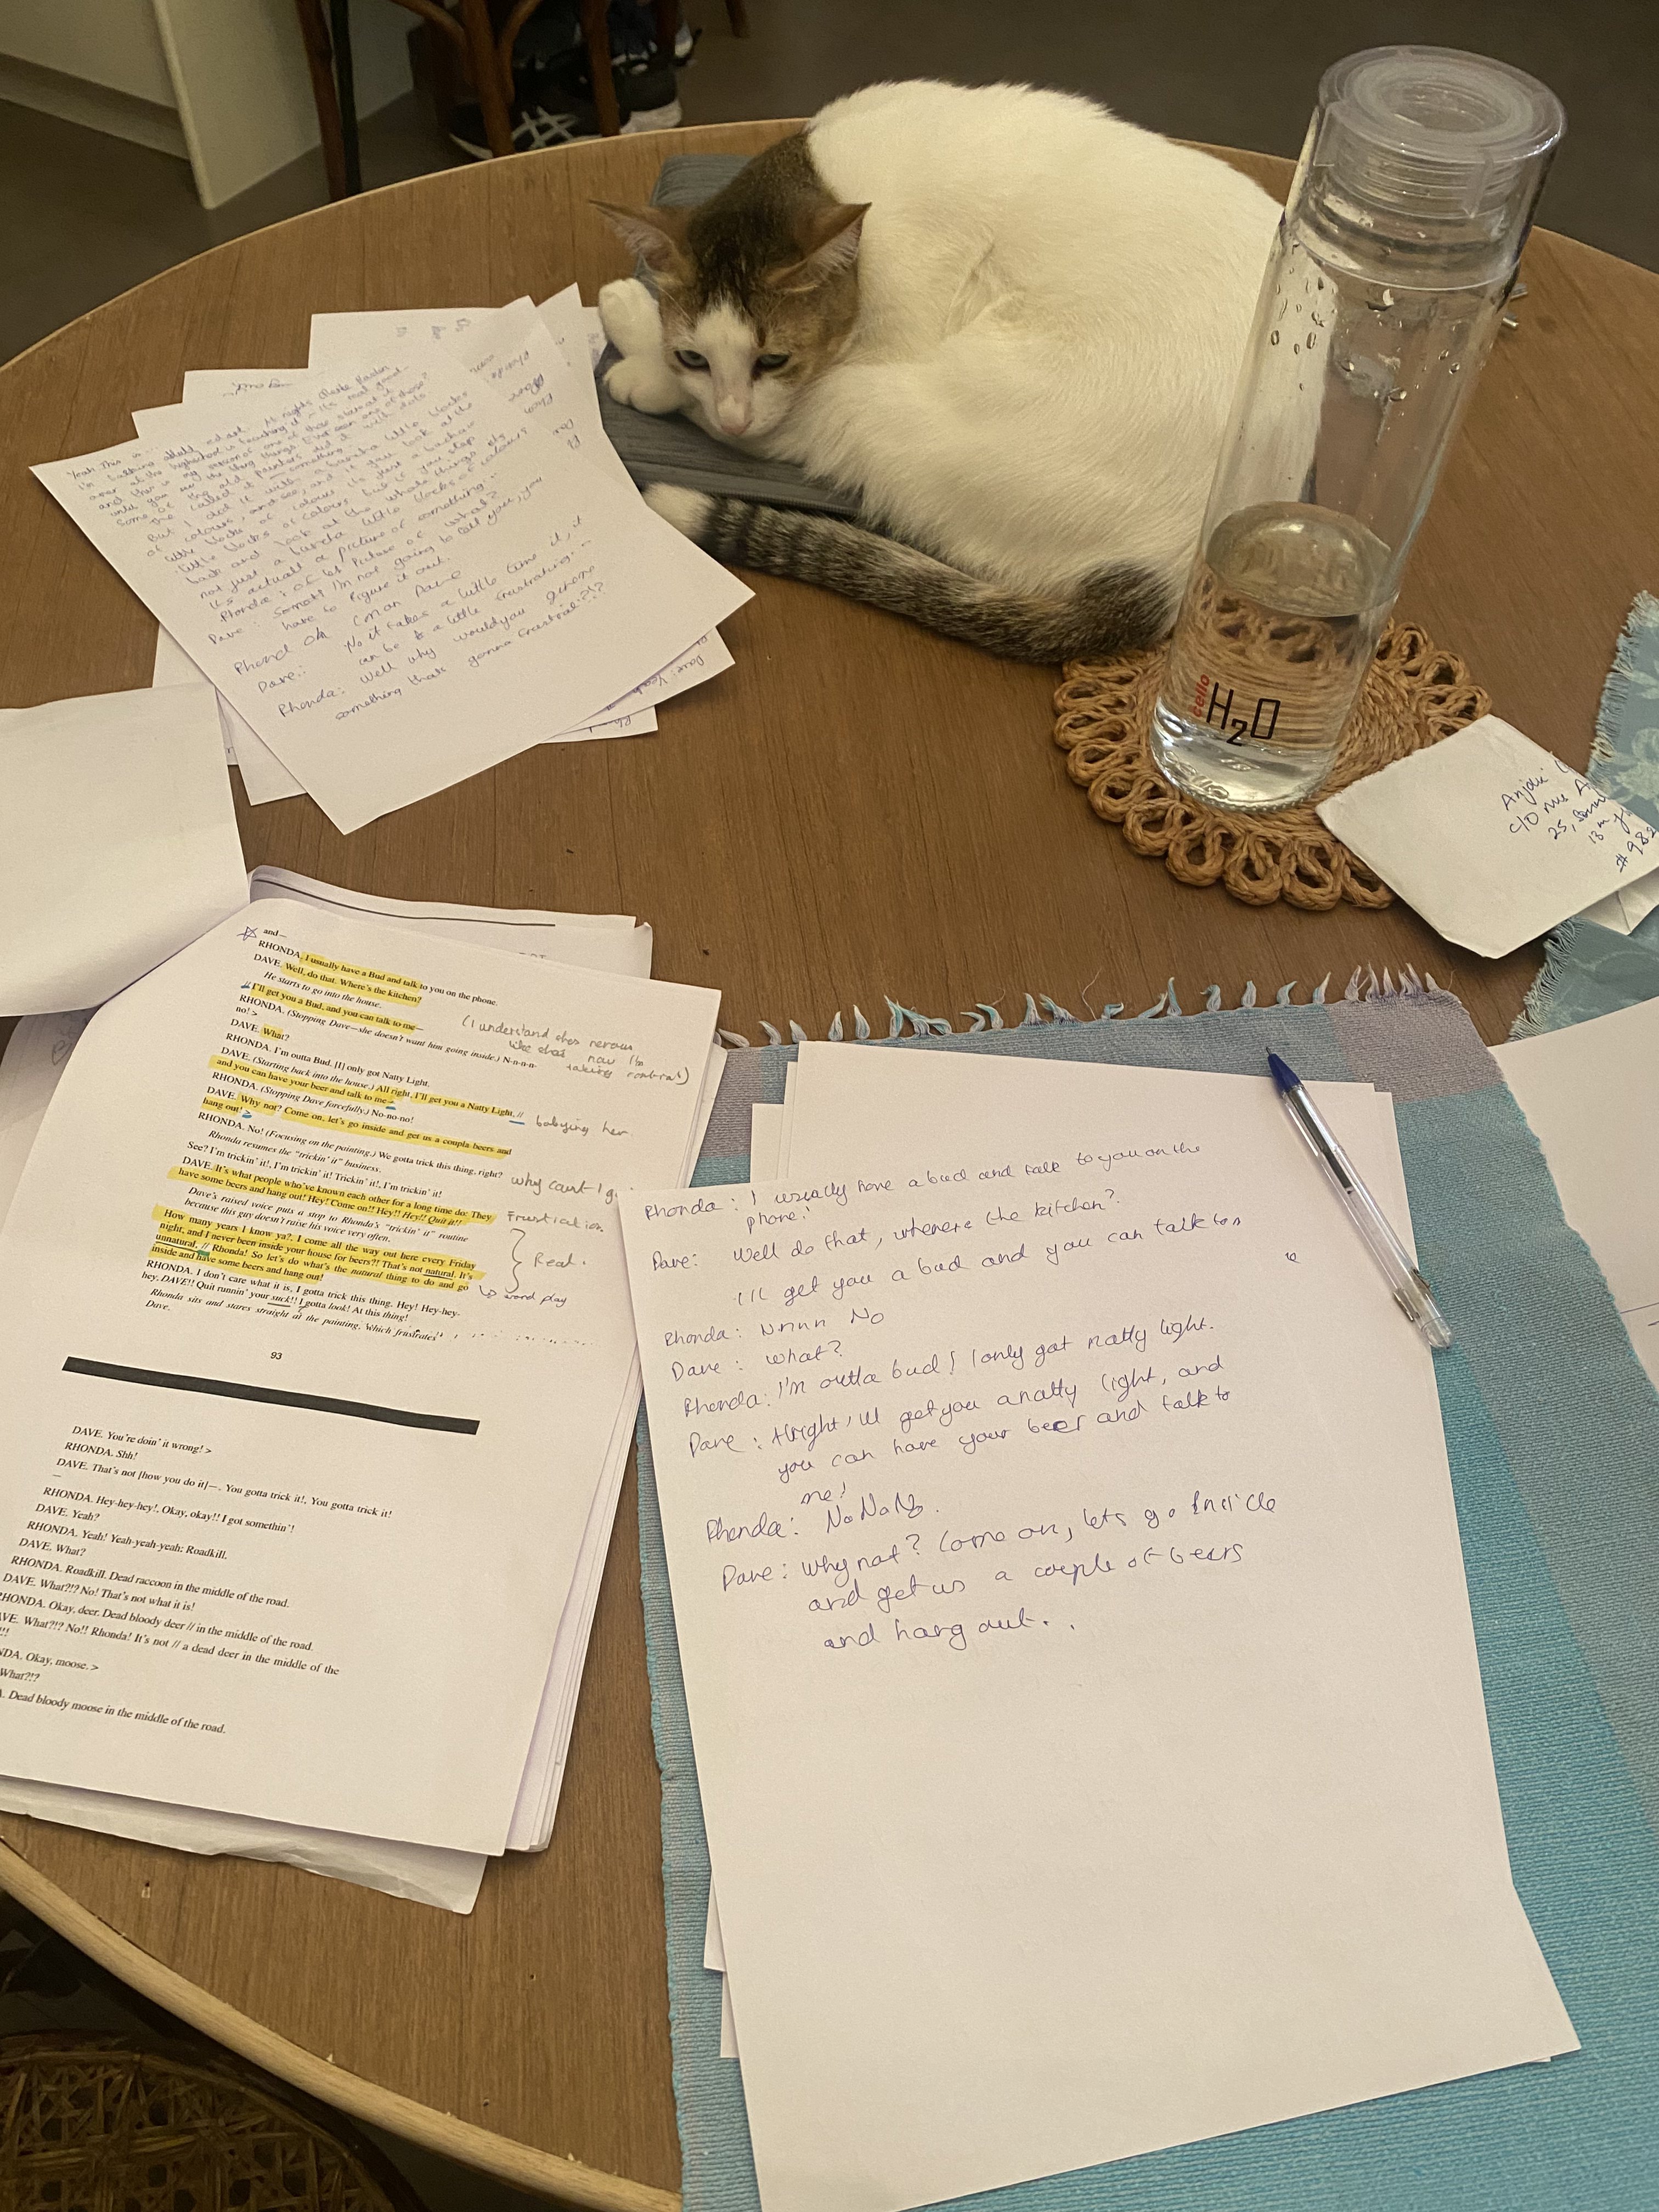 Yeah This is
until you see the thing things. Ever seen one of those?
Some of the old, painters did it with dots
the called it — something.
But I did it with a buncha little blocks
of colours, and see, and if you look at the
little blocks of colours its just a buchar
little blocks of colours but if you step
back and look at the whole things its
not just a buncha little blocks of colours?
Its actuall a picture of something..
Rhonda: of let Picture of what?
Dave: Somat! I'm not going to tell you, you
have to figure it out.
Rhond OA Com'an Dave
Dave:: No it takes a little time it, it
can be a little frustrating..
Rhonda: Well why would you gimme
something thats gonna frustrial?!?
cello
H2O
Anjali
C/O Mrs A
25,
13th
# 982
and—
RHONDA. I usually have a Bud and talk to you on the phone.
DAVE. Well, do that. Where's the kitchen?
He starts to go into the house.
// I'll get you a Bud, and you can talk to me—
RHONDA. (Stopping Dave—she doesn't want him going inside.) N-n-n-n-
no! >
(I understand shes nervous
like shes now I'm
taking control)
DAVE. What?
RHONDA. I'm outta Bud. [I] only got Natty Light.
DAVE. (Starting back into the house.) All right, I'll get you a Natty Light, //
and you can have your beer and talk to me >
RHONDA. (Stopping Dave forcefully.) No-no-no!
DAVE. Why not? Come on, let's go inside and get us a coupla beers and
hang out! >
babying her
RHONDA. No! (Focusing on the painting.) We gotta trick this thing, right?
Rhonda resumes the "trickin' it" business.
See? I'm trickin' it!, I'm trickin' it! Trickin' it!, I'm trickin' it!
why cant I g
DAVE. It's what people who've known each other for a long time do: They
have some beers and hang out! Hey! Come on!! Hey!! Hey!! Quit it!!
Frustration
Dave's raised voice puts a stop to Rhonda's "trickin' it" routine
because this guy doesn't raise his voice very often.
How many years I know ya?. I come all the way out here every Friday
night, and I never been inside your house for beers?! That's not natural. It's
unnatural, // Rhonda! So let's do what's the natural thing to do and go
inside and have some beers and hang out!
Real.
word play
RHONDA. I don't care what it is, I gotta trick this thing. Hey! Hey-hey-
hey, DAVE!! Quit runnin' your suck!! I gotta look! At this thing!
Rhonda sits and stares straight at the painting, Which frustrates
Dave.
93
DAVE. You're doin' it wrong! >
RHONDA. Shh!
DAVE. That's not [how you do it]—. You gotta trick it!, You gotta trick it!
—
RHONDA. Hey-hey-hey!, Okay, okay!! I got somethin'!
DAVE. Yeah?
RHONDA. Yeah! Yeah-yeah-yeah: Roadkill.
DAVE. What?
RHONDA. Roadkill. Dead raccoon in the middle of the road.
DAVE. What?!? No! That's not what it is!
HONDA. Okay, deer. Dead bloody deer // in the middle of the road.
VE. What?!? No!! Rhonda! It's not // a dead deer in the middle of the
!!!
NDA. Okay, moose. >
What?!?
. Dead bloody moose in the middle of the road.
Rhonda: I usually have a bud and talk to you on the
phone!
Dave: Well do that, wheneres the kitchen?
I'll get you a bud and you can talk to
Rhonda: Nnnn No
Dave: what?
Rhonda: I'm outta bud! I only got natty light.
Dave: Alright, ill get you a natty light, and
you can have your beer and talk to
me!
Rhonda: NoNoNo.
Dave: Why not? Come on, lets go Inside
and get us a couple of beers
and hang out..